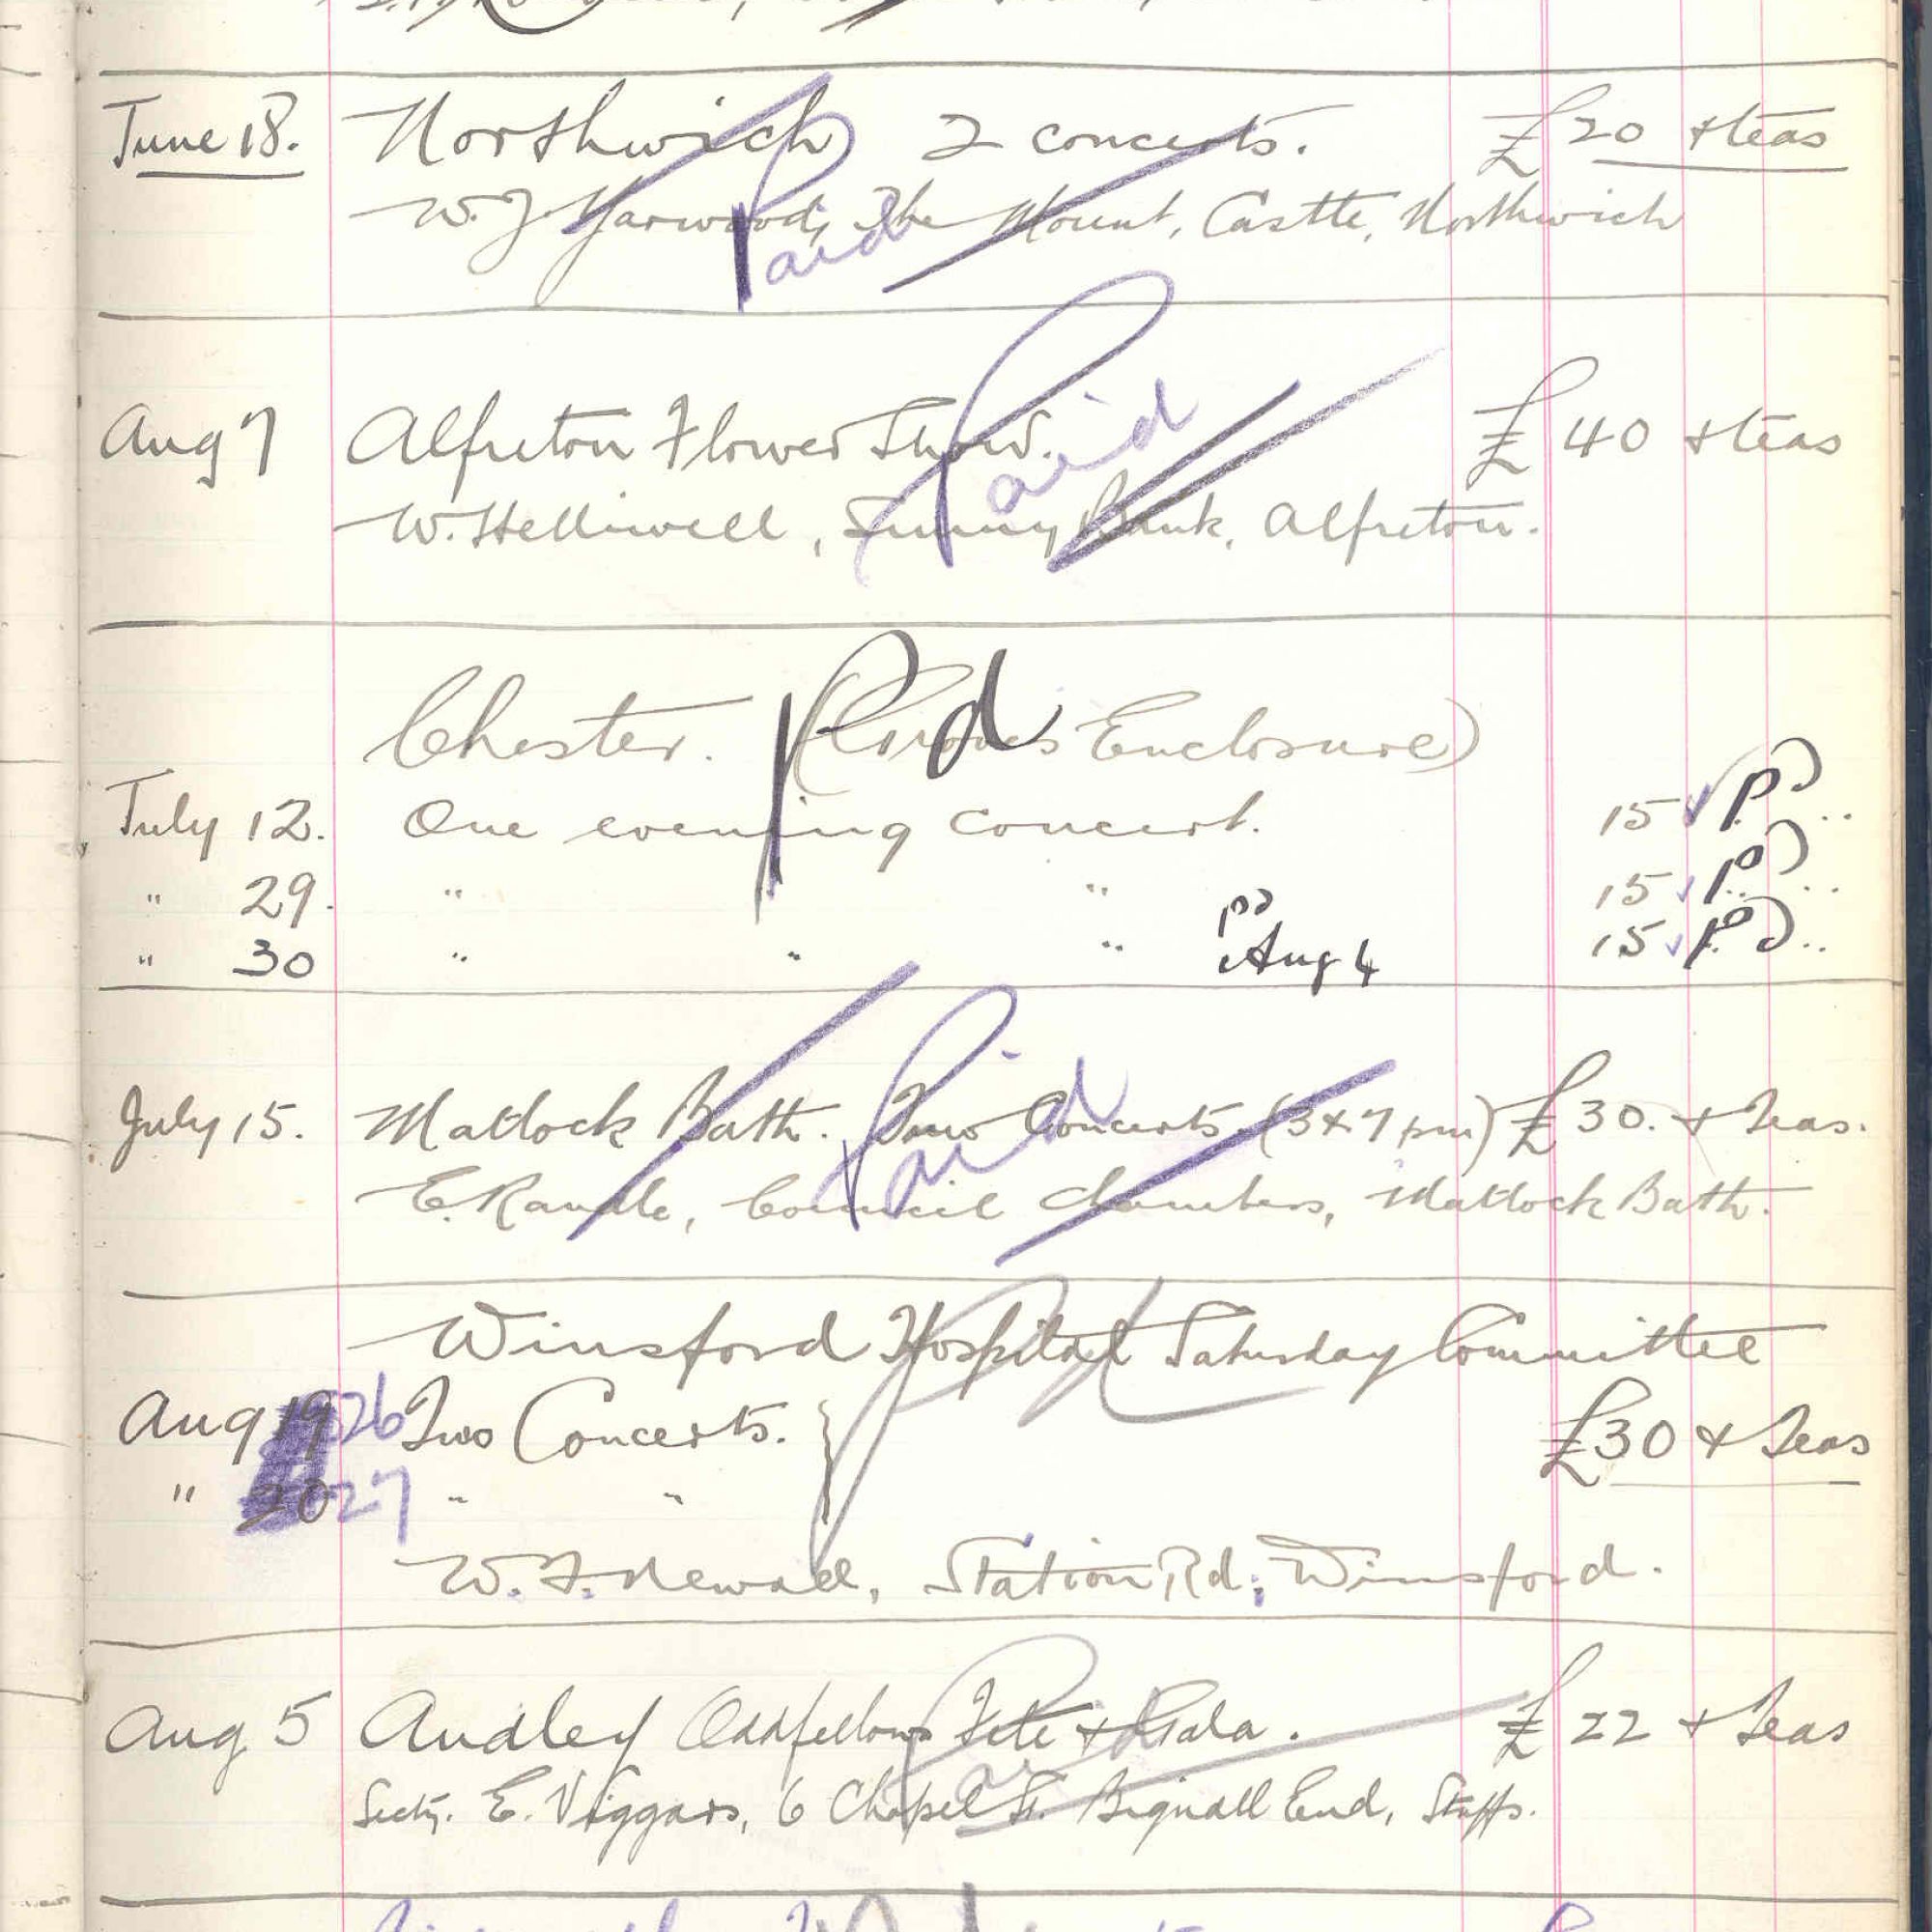 June 18. Northwich 2 concerts. £20 & teas
W. J. Yarwood, The Mount, Castle, Northwich
Paid
Aug 7 Alfreton Flower Show. £40 & teas
W. Helliwell, Sunny Bank, Alfreton.
Paid
Chester. (Groves Enclosure)
Pd
July 12. One evening concert. 15 pd
" 29. " " " 15 pd
" 30 " " " pd Aug 4 15 pd
July 15. Matlock Bath. Two Concerts (3 & 7 pm) £30. & Teas.
E. Randle, Council Chambers, Matlock Bath.
Paid
Winsford Hospital Saturday Committee
Pd
Aug 19 26 Two Concerts. } £30 & Teas
" 20 27 " "
W. F. Newall, Station Rd, Winsford.
Aug 5 Audley Oddfellows Fete & Gala. £22 & Teas
Secty. E. Viggars, 6 Chapel St. Bignall End, Staffs.
Paid